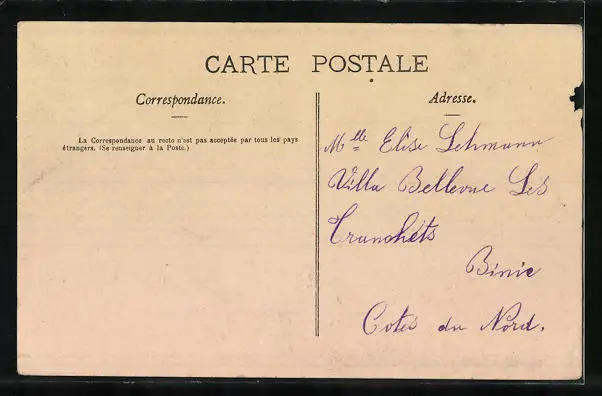 CARTE POSTALE
Correspondance.
La Correspondance au recto n'est pas acceptée par tous les pays
étrangers. (Se renseigner à la Poste.)
Adresse.
Mlle Elise Lehmann
Villa Bellevue Les
Tranchéts
Binic
Cotes du Nord.